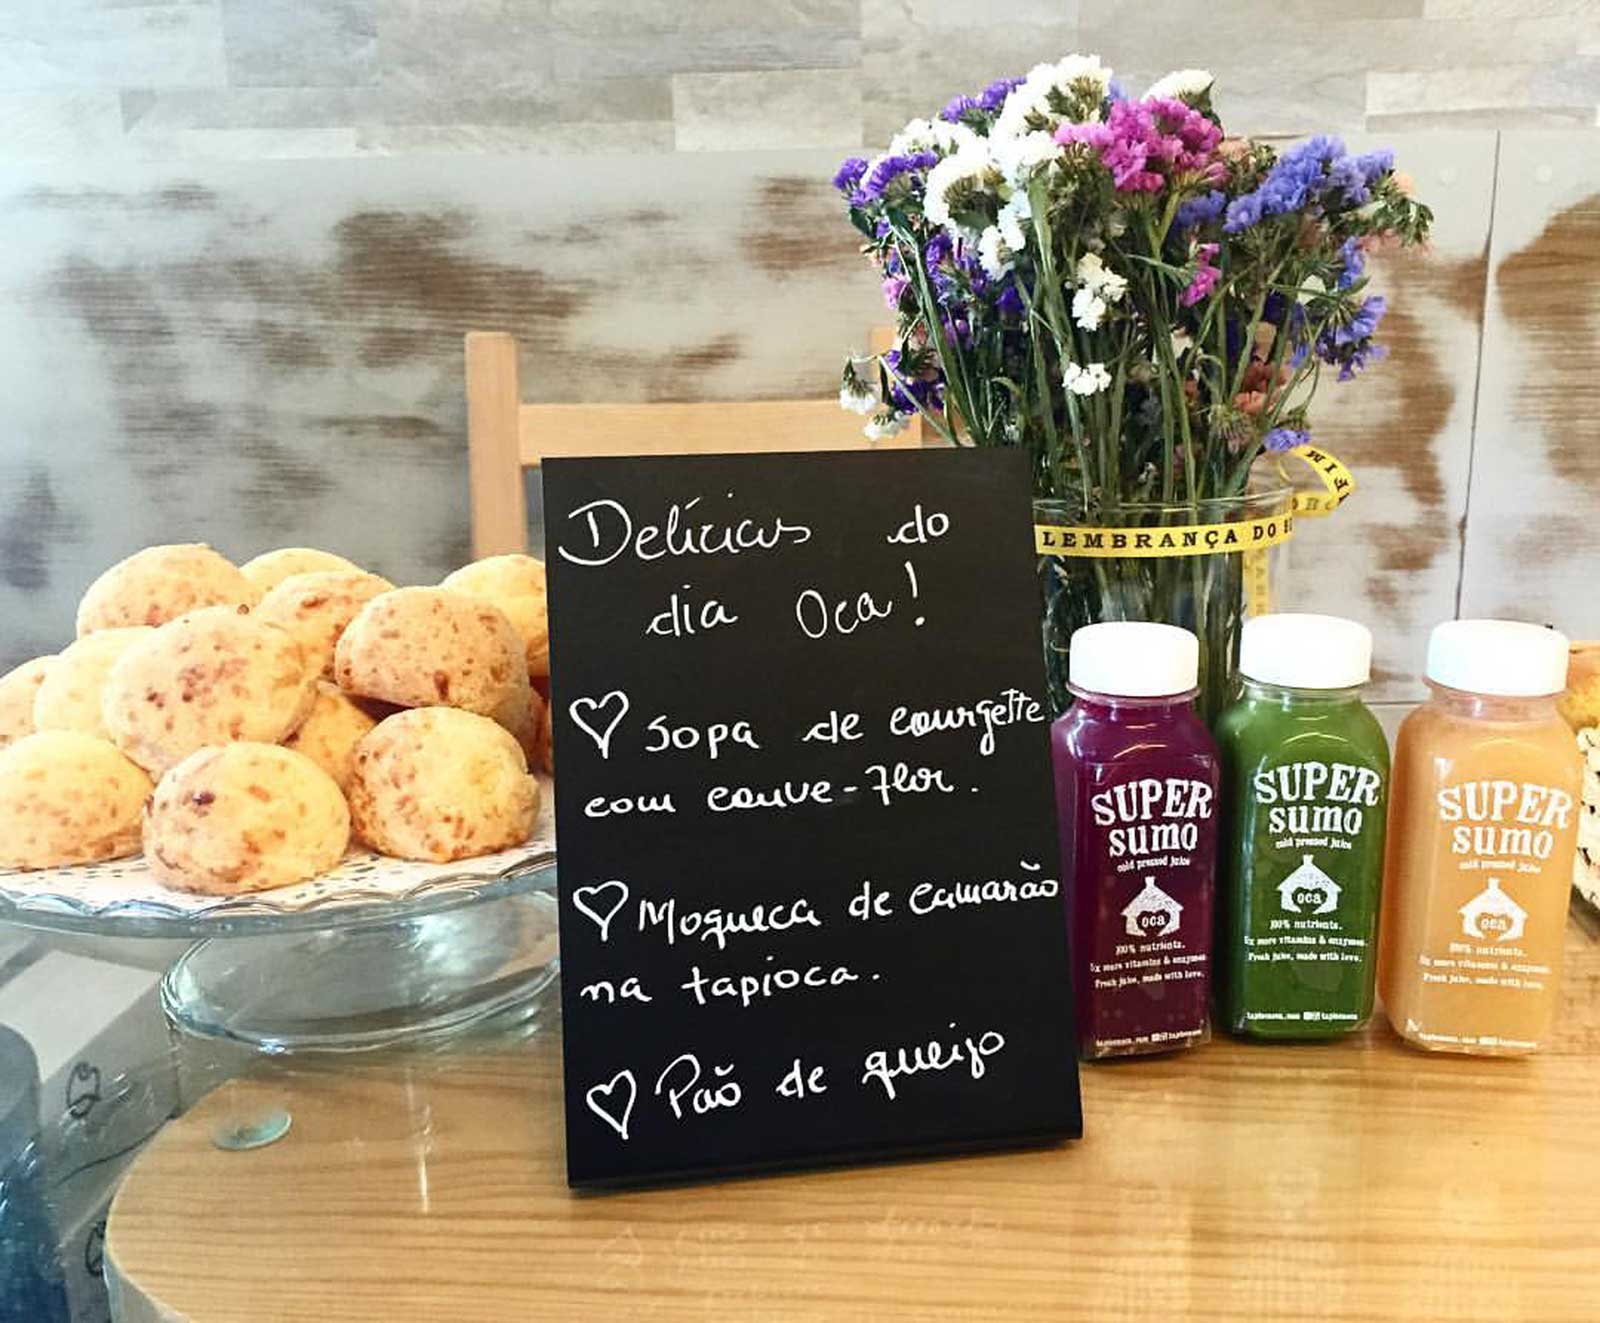 Delícias do
dia Oca!
Sopa de courgette
com couve-flor.
Moqueca de camarão
na tapioca.
Paõ de queijo
LEMBRANÇA DO
FIM
SUPER
SUMO
cold pressed juice
oca
100% nutrients.
5x more vitamins & enzymes.
Fresh juice, made with love.
SUPER
SUMO
cold pressed juice
oca
100% nutrients.
5x more vitamins & enzymes.
Fresh juice, made with love.
SUPER
SUMO
cold pressed juice
oca
100% nutrients.
5x more vitamins & enzymes.
Fresh juice, made with love.